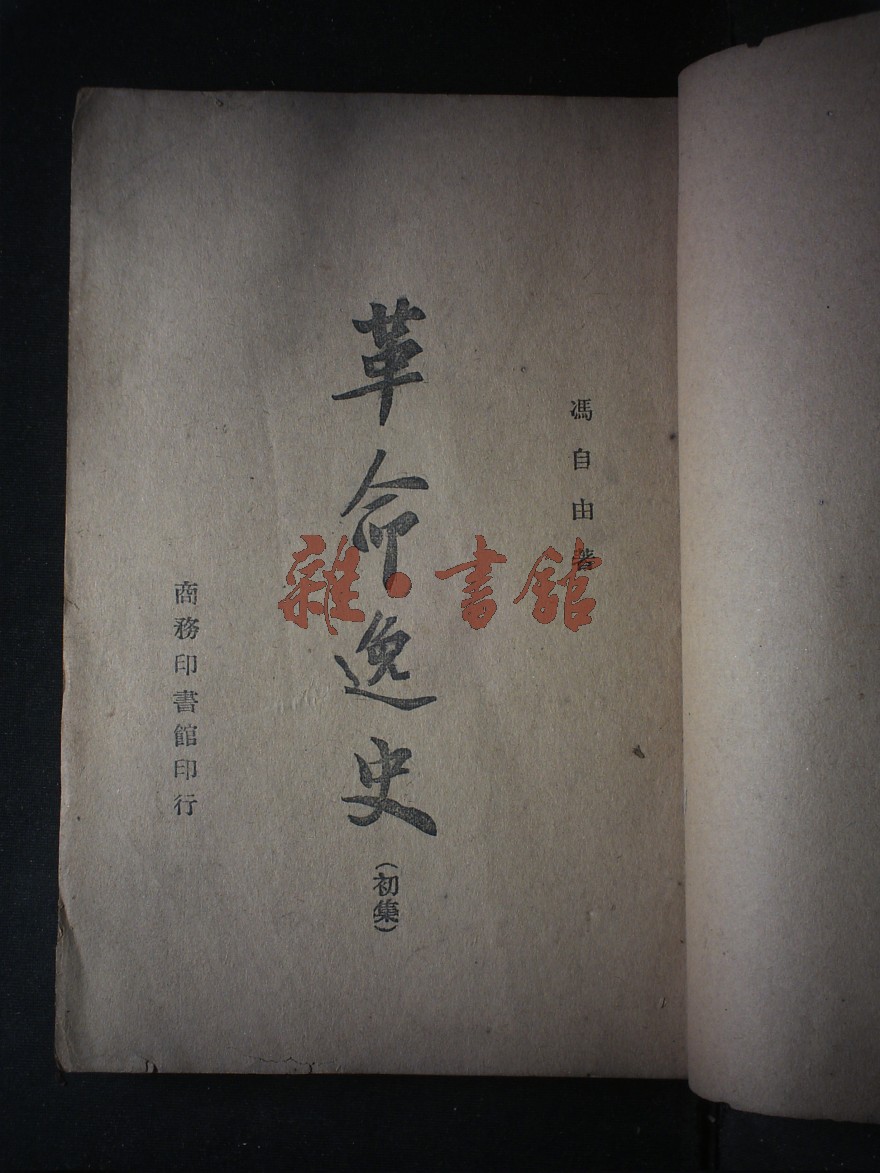 馮自由著
革命逸史
(初集)
商務印書館印行
雜·書館